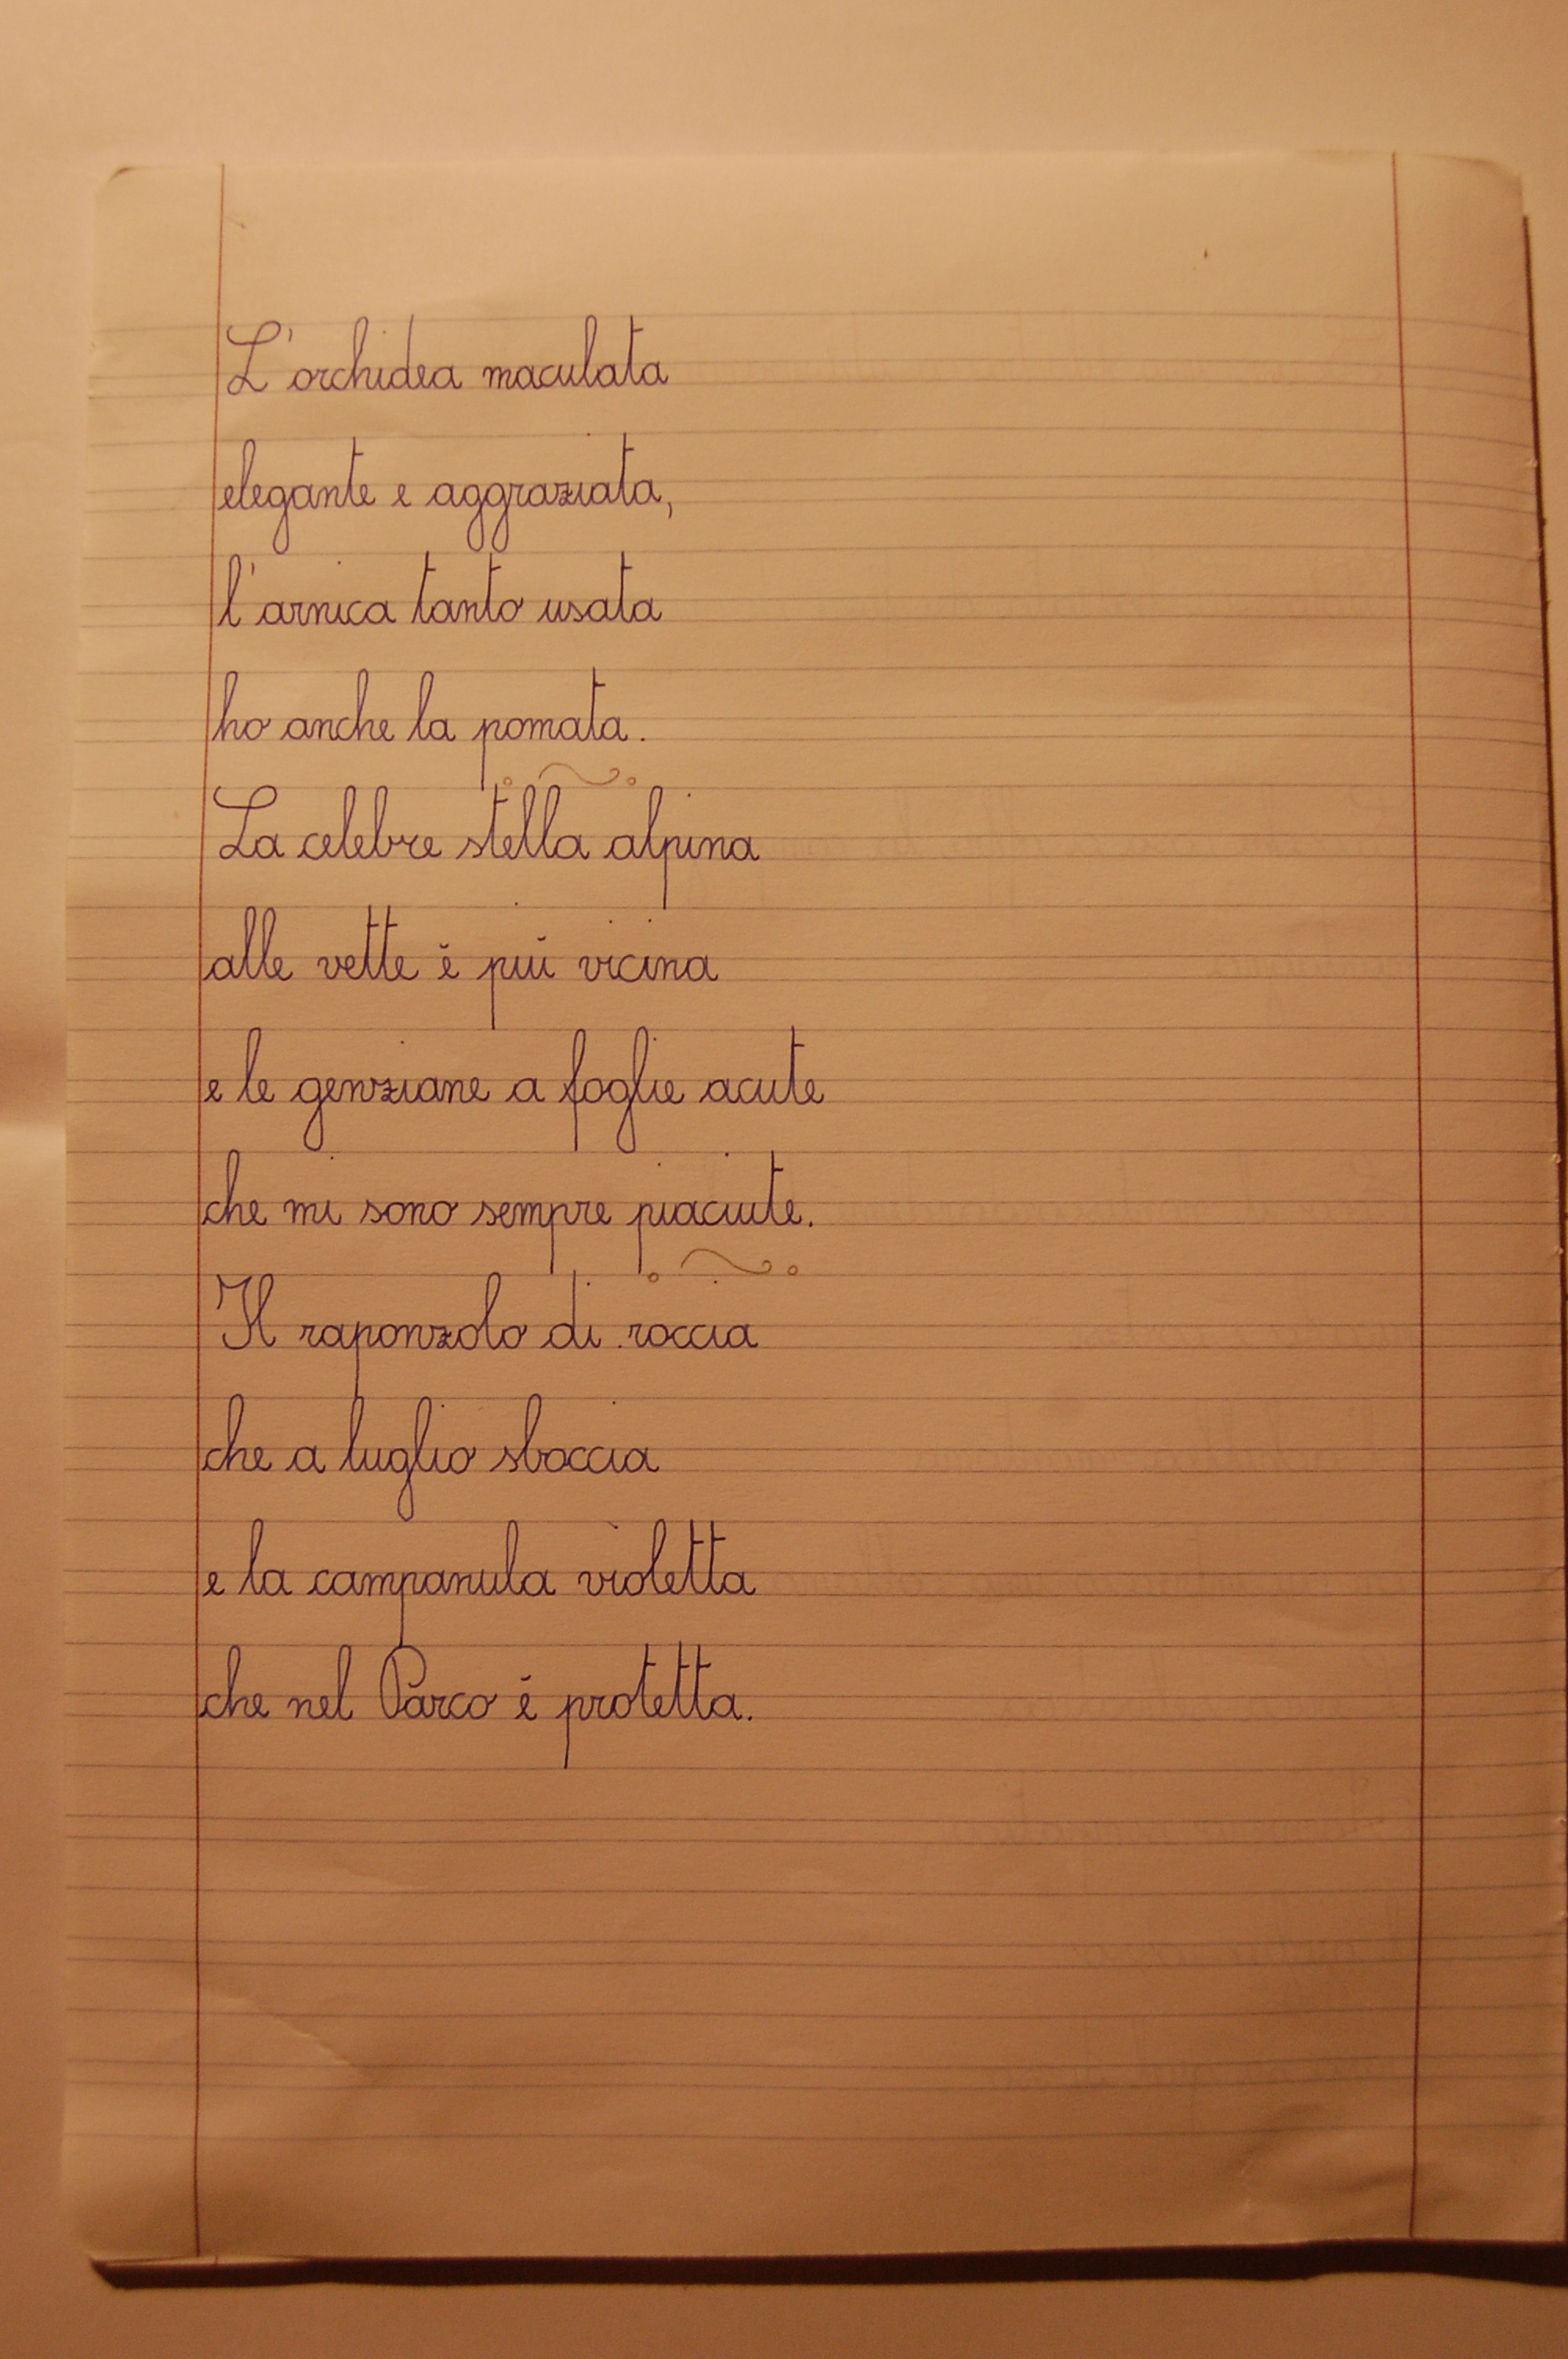 L'orchidea maculata
elegante e aggraziata,
l'arnica tanto usata
ho anche la pomata.
La celebre stella alpina
alle vette è più vicina
e le genziane a foglie acute
che mi sono sempre piaciute.
Il raponzolo di roccia
che a luglio sboccia
e la campanula violetta
che nel Parco è protetta.